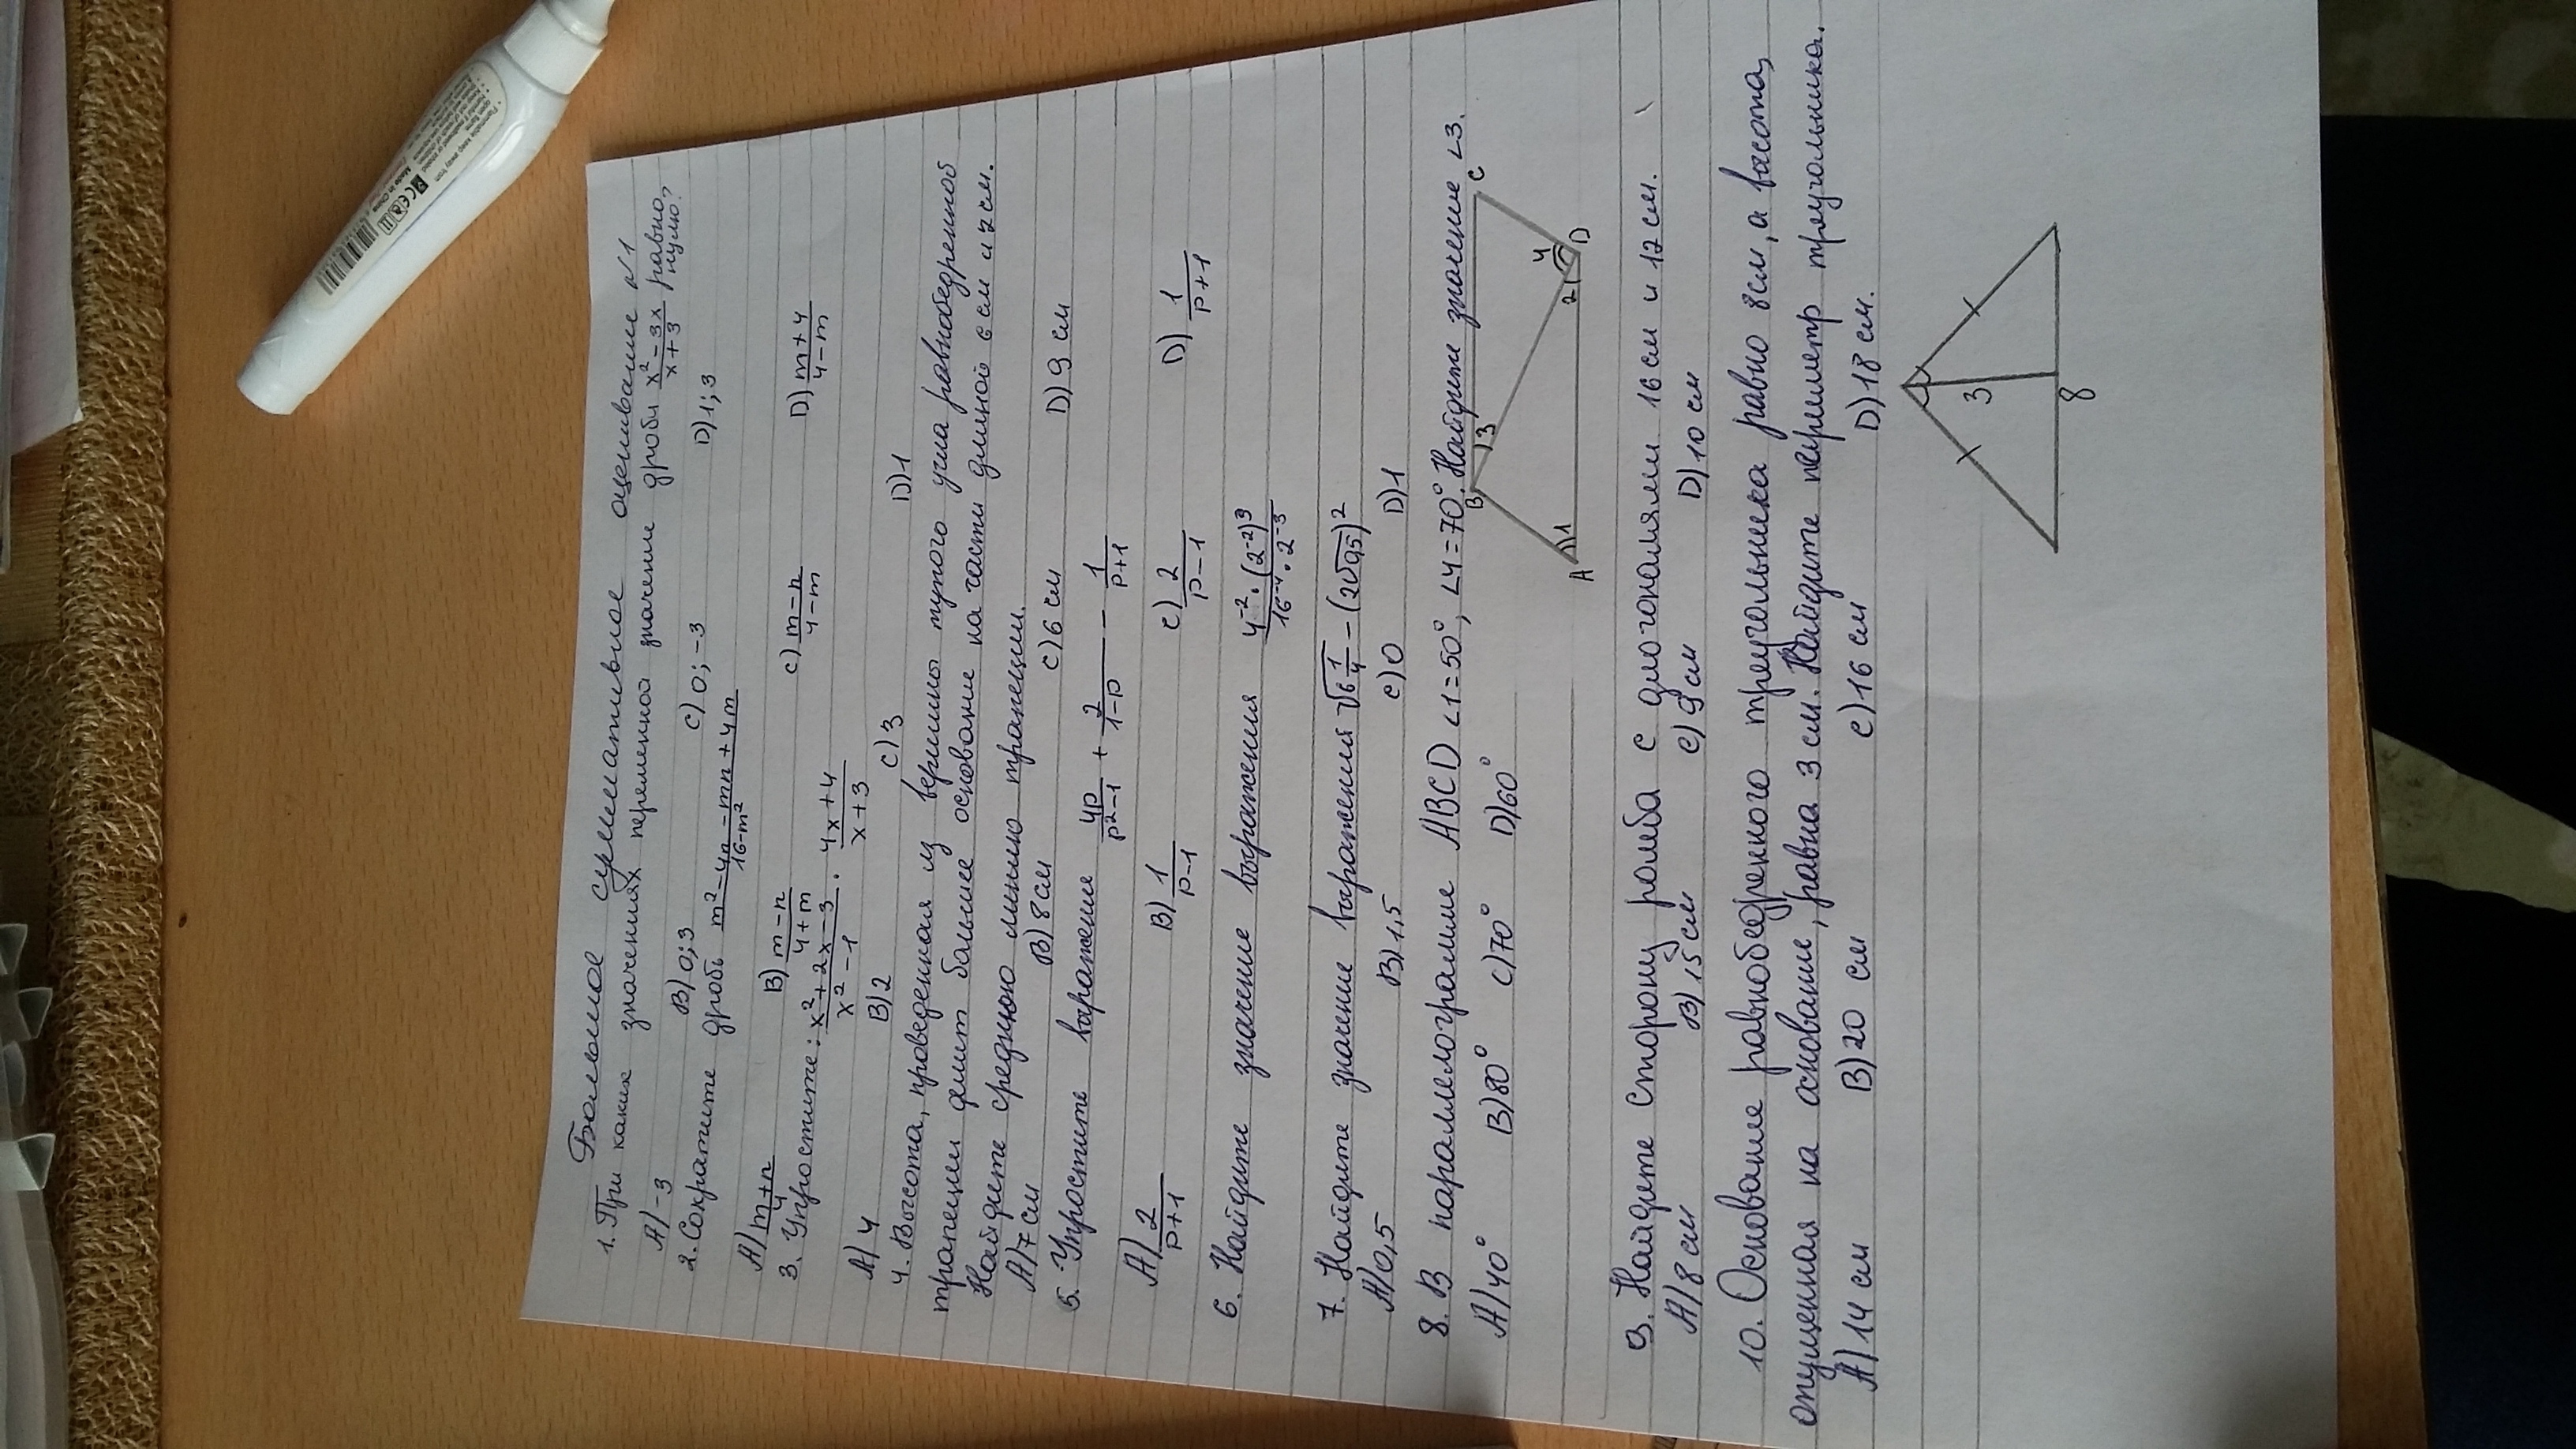 Большое суммативное оценивание №1
1. При каких значениях переменной значение дроби (x² - 3x)/(x + 3) равно нулю?
A) -3 B) 0; 3 C) 0; -3 D) 1; 3
2. Сократите дробь (m² - 4n - mn + 4m)/(16 - m²)
A) (m + n)/4 B) (m - n)/(4 + m) C) (m - n)/(4 - m) D) (m + 4)/(4 - m)
3. Упростите: (x² + 2x - 3)/(x² - 1) · (4x + 4)/(x + 3)
A) 4 B) 2 C) 3 D) 1
4. Высота, проведенная из вершины тупого угла равнобедренной
трапеции делит большее основание на части длиной 6 см и 2 см.
Найдите среднюю линию трапеции.
A) 7 см B) 8 см C) 6 см D) 9 см
5. Упростите выражение 4p/(p² - 1) + 2/(1 - p) - 1/(p + 1)
A) 2/(p + 1) B) 1/(p - 1) C) 2/(p - 1) D) 1/(p + 1)
6. Найдите значение выражения (4⁻² · (2⁻²)³)/(16⁻⁴ · 2⁻³)
7. Найдите значение выражения √(6 1/4) - (2√0,5)²
A) 0,5 B) 1,5 C) 0 D) 1
8. В параллелограмме ABCD ∠1 = 50°, ∠4 = 70°. Найдите значение ∠3.
A) 40° B) 80° C) 70° D) 60°
B C
3 4
1 2
A D
9. Найдите сторону ромба с диагоналями 16 см и 12 см.
A) 8 см B) 15 см C) 9 см D) 10 см
10. Основание равнобедренного треугольника равно 8 см, а высота,
опущенная на основание, равна 3 см. Найдите периметр треугольника.
A) 14 см B) 20 см C) 16 см D) 18 см.
3
8
Made in China